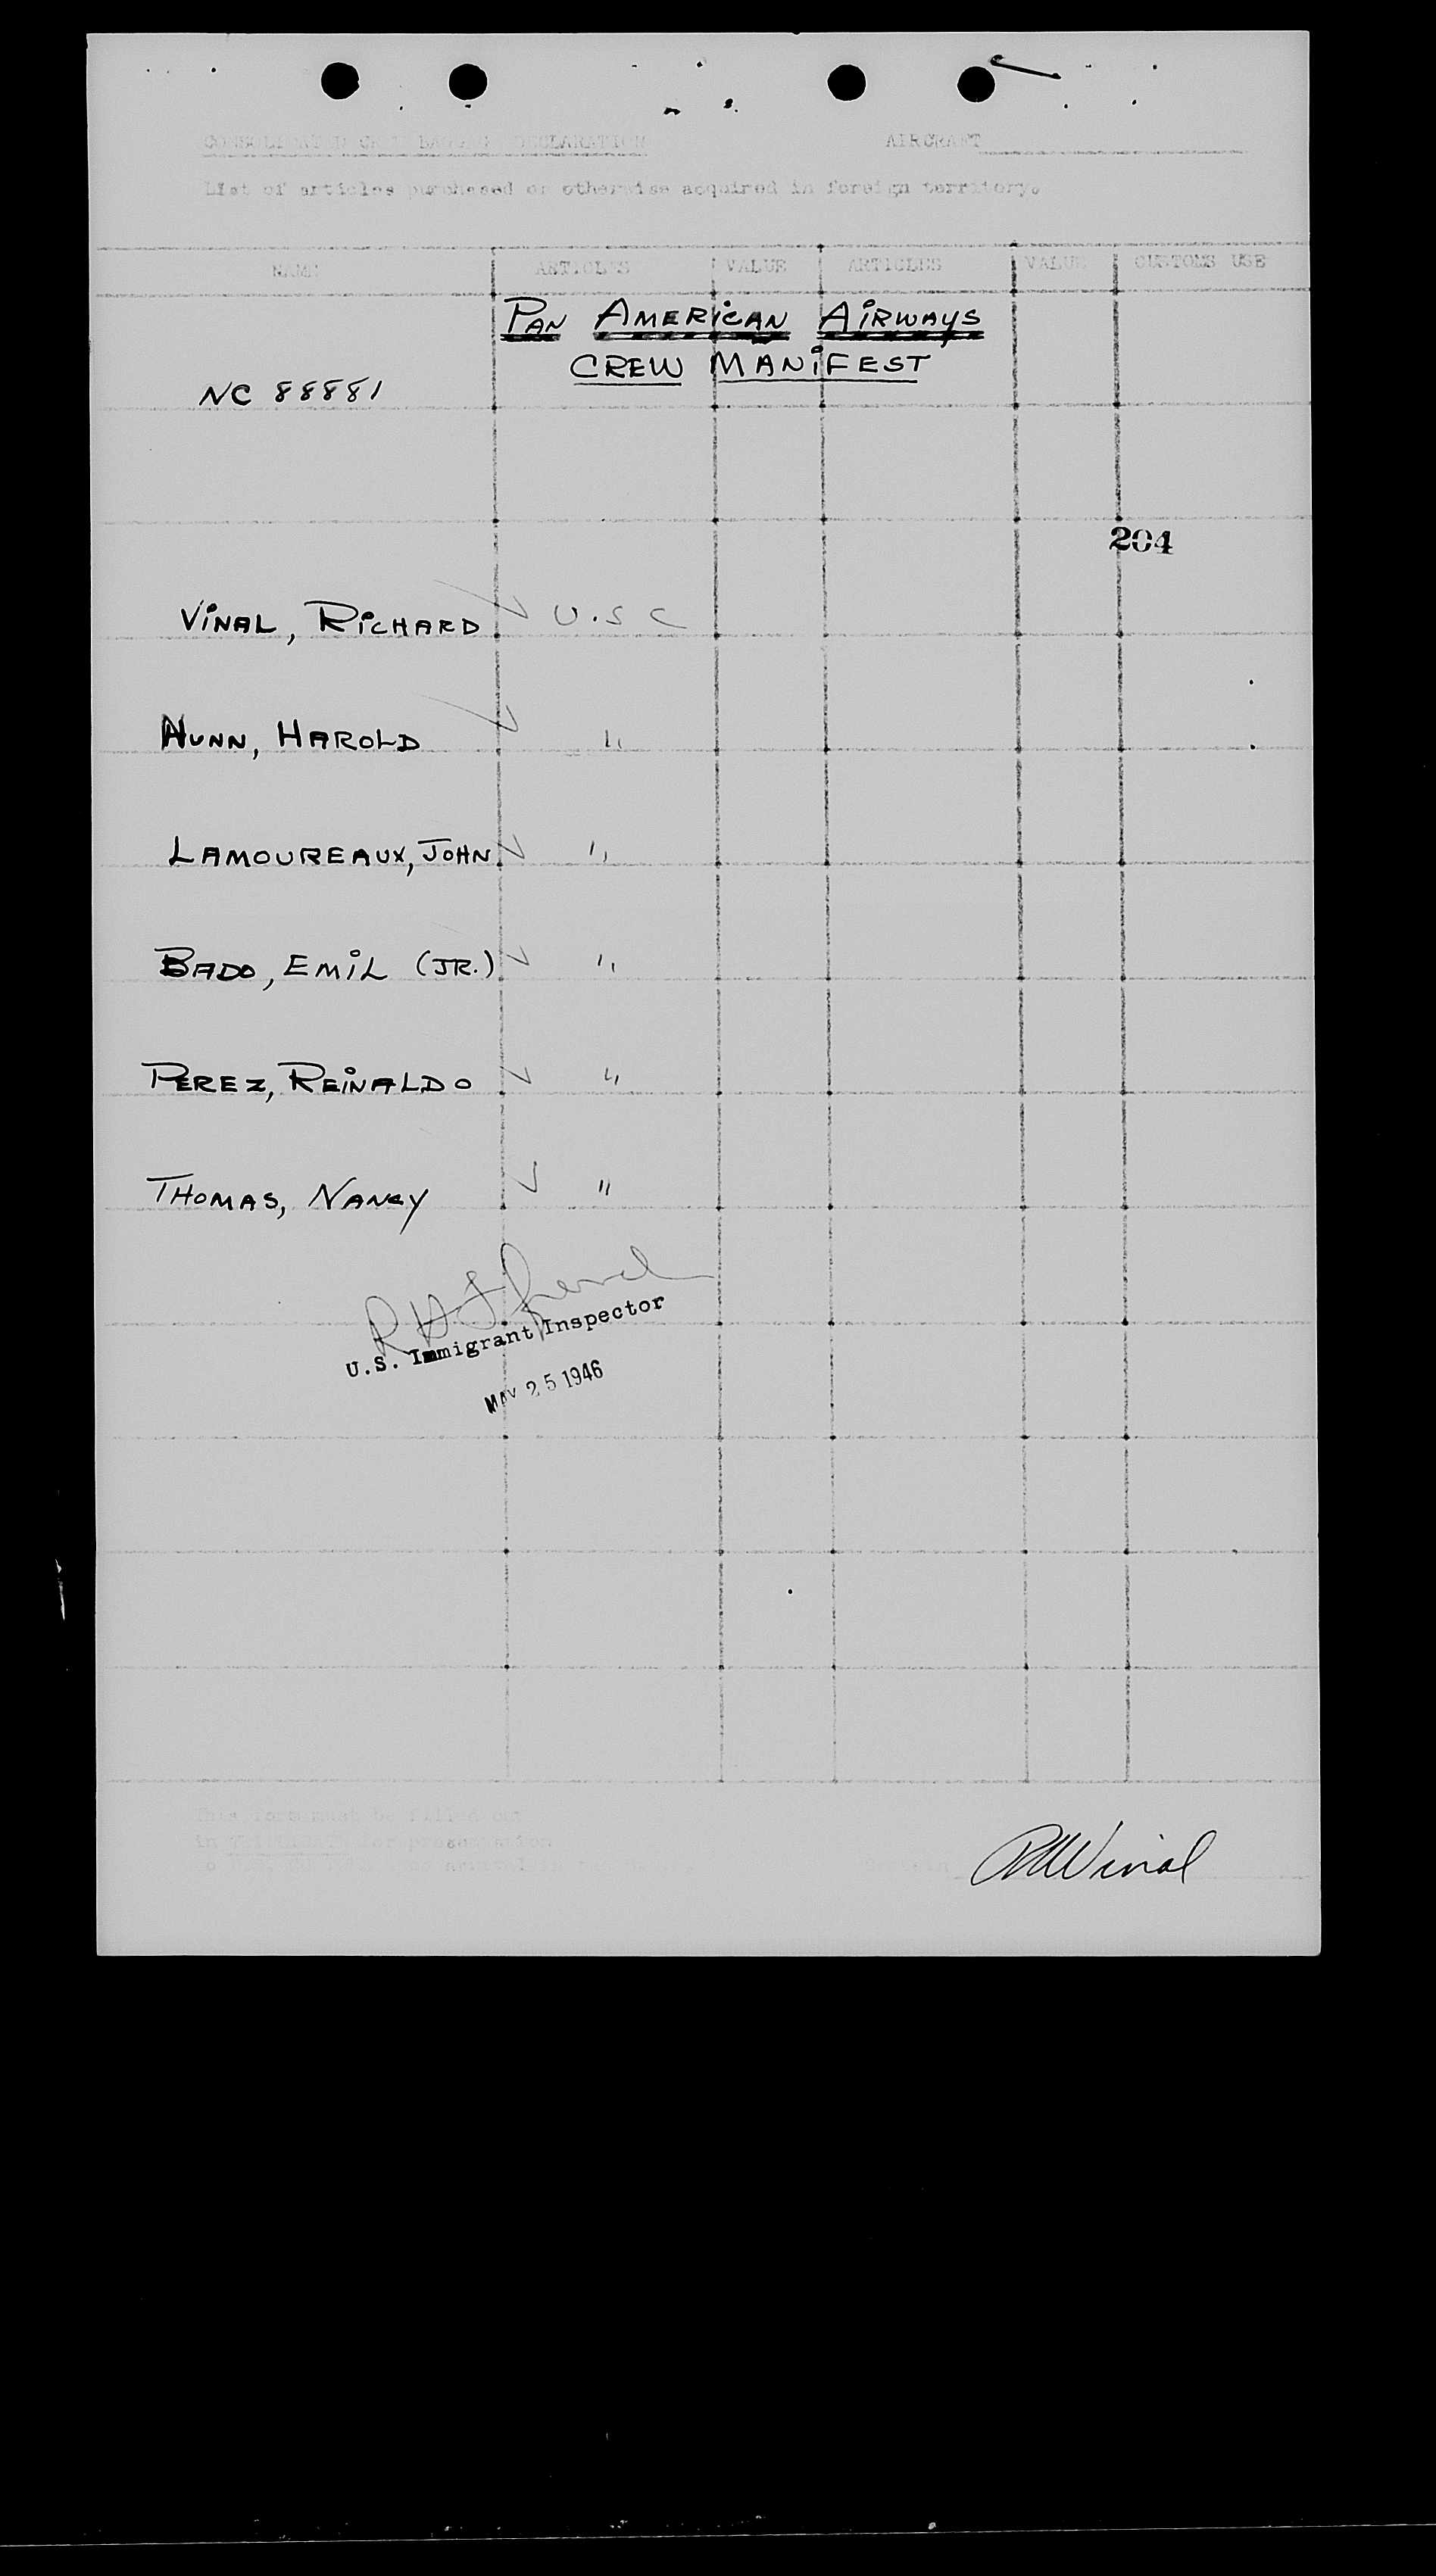 CONSOLIDATED CREW BAGGAGE DECLARATION AIRCRAFT
List of articles purchased or otherwise acquired in foreign territory.
NAME ARTICLES VALUE ARTICLES VALUE CUSTOMS USE
PAN AMERICAN AIRWAYS
CREW MANIFEST
NC 88881
204
VINAL, RICHARD U.S C
NUNN, HAROLD "
LAMOUREAUX, JOHN "
BADO, EMIL (JR.) "
PEREZ, REINALDO "
THOMAS, NANCY "
U.S. Immigrant Inspector
MAY 25 1946
This form must be filled out
in for presentation
arrival in
Captain Vinal